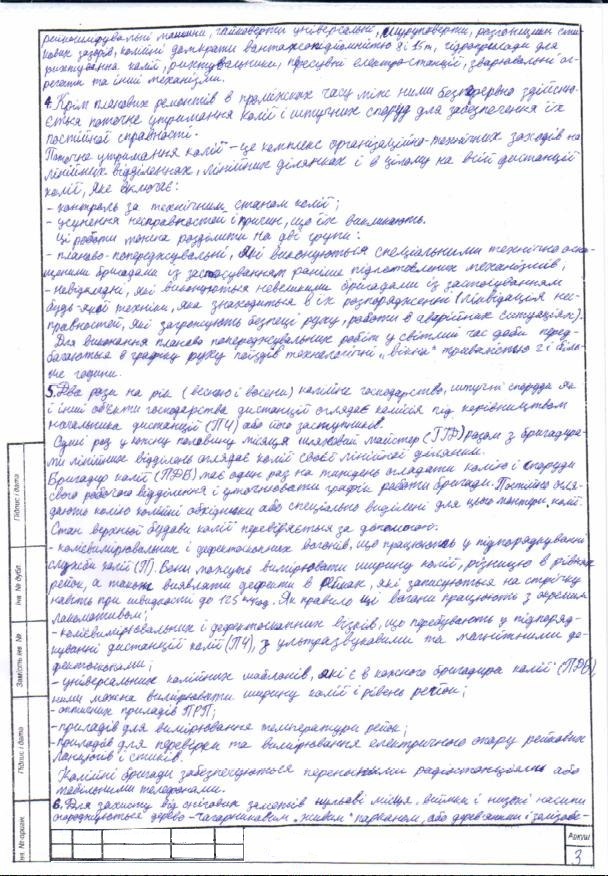 рейкошліфувальні машини, гайковерти універсальні, шуруповерти, разгонщики сти-
кових зазорів, колійні домкрати вантажопідйомністю 8 і 15т, гідроприлади для
рихтування колії, рихтувальники, пересувні електростанції, зварювальні аг-
регати та інші механізми.
4. Крім планових ремонтів в проміжках часу між ними безперервно здійсню-
ється поточне утримання колії і штучних споруд для забезпечення їх
постійної справності.
Поточне утримання колії – це комплекс організаційно-технічних заходів на
лінійних відділеннях, лінійних ділянках і в цілому на всій дистанції
колії, яке включає:
- контроль за технічним станом колії;
- усунення несправностей і причин, що їх викликають.
Ці роботи можна розділити на дві групи:
- планово-попереджувальні, які виконуються спеціальними технічно осна-
щеними бригадами із застосуванням раніше підготовлених механізмів;
- невідкладні, які виконуються невеликими бригадами із застосуванням
будь-якої техніки, яка знаходиться в їх розпорядженні (ліквідація нес-
правностей, які загрожують безпеці руху, роботи в аварійних ситуаціях).
Для виконання планово попереджувальних робіт у світлий час доби перед-
бачаються в графіку руху поїздів технологічні „вікна" тривалістю 2 і біль-
ше години.
5. Два рази на рік (весною і восени) колійне господарство, штучні споруди як
і інші об'єкти господарства дистанції оглядає комісія під керівництвом
начальника дистанції (ПЧ) або його заступників.
Один раз у кожну половину місяця шляховий майстер (ПД) разом з бригадира-
ми лінійних відділень оглядає колії своєї лінійної ділянки.
Бригадир колії (ПДБ) має один раз на тиждень оглядати колію і споруди
свого робочого відділення і уточнювати графік роботи бригади. Постійно огля-
дають колію колійні обхідники або спеціально виділені для цього монтери колії.
Стан верхньої будови колії перевіряється за допомогою:
- колієвимірювальних і дефектоскопних вагонів, що працюють у підпорядкуванні
служби колії (П). Вони можуть вимірювати ширину колії, різницю в рівнях
рейок, а також виявляти дефекти в рейках, які записуються на стрічку
навіть при швидкості до 125 км/год. Як правило ці вагони працюють з окремим
локомотивом;
- колієвимірювальних і дефектоскопних візків, що перебувають у підпоряд-
куванні дистанції колії (ПЧ), з ультразвуковими та магнітними де-
фектоскопами;
- універсальних колійних шаблонів, які є в кожного бригадира колії (ПДБ),
ними можна вимірювати ширину колії і рівень рейок;
- оптичних приладів ПРП;
- приладів для вимірювання температури рейок;
- приладів для перевірки та вимірювання електричного опору рейкових
ланцюгів і стиків.
Колійні бригади забезпечуються переносними радіостанціями або
мобільними телефонами.
6. Для захисту від снігових заметів нульові місця, виїмки і низькі насипи
огороджуються дерево-чагарниковим „живим" парканом, або дерев'яними і залізобе-
Підпис і дата
Інв. № дубл.
Замість інв. №
Підпис і дата
Інв. № оригін.
Аркуш
3